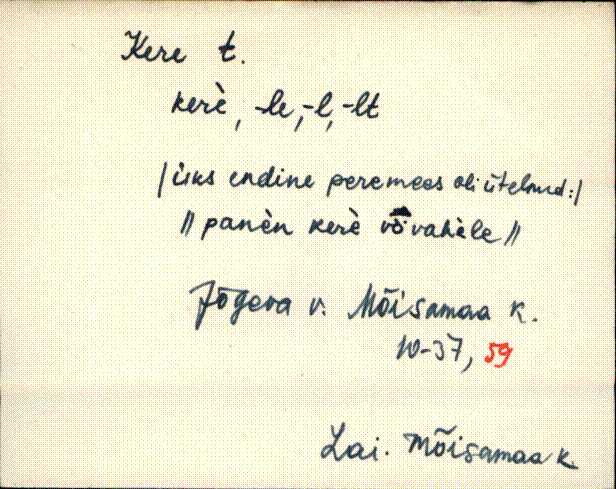 Kere t.
kerè, -le, -l, -lt
/üks endine peremees oli ütelnud:/
// panèn kerè võ vahèle //
Jõgeva v. Mõisamaa k.
W-37, 59
Lai. Mõisamaa k.